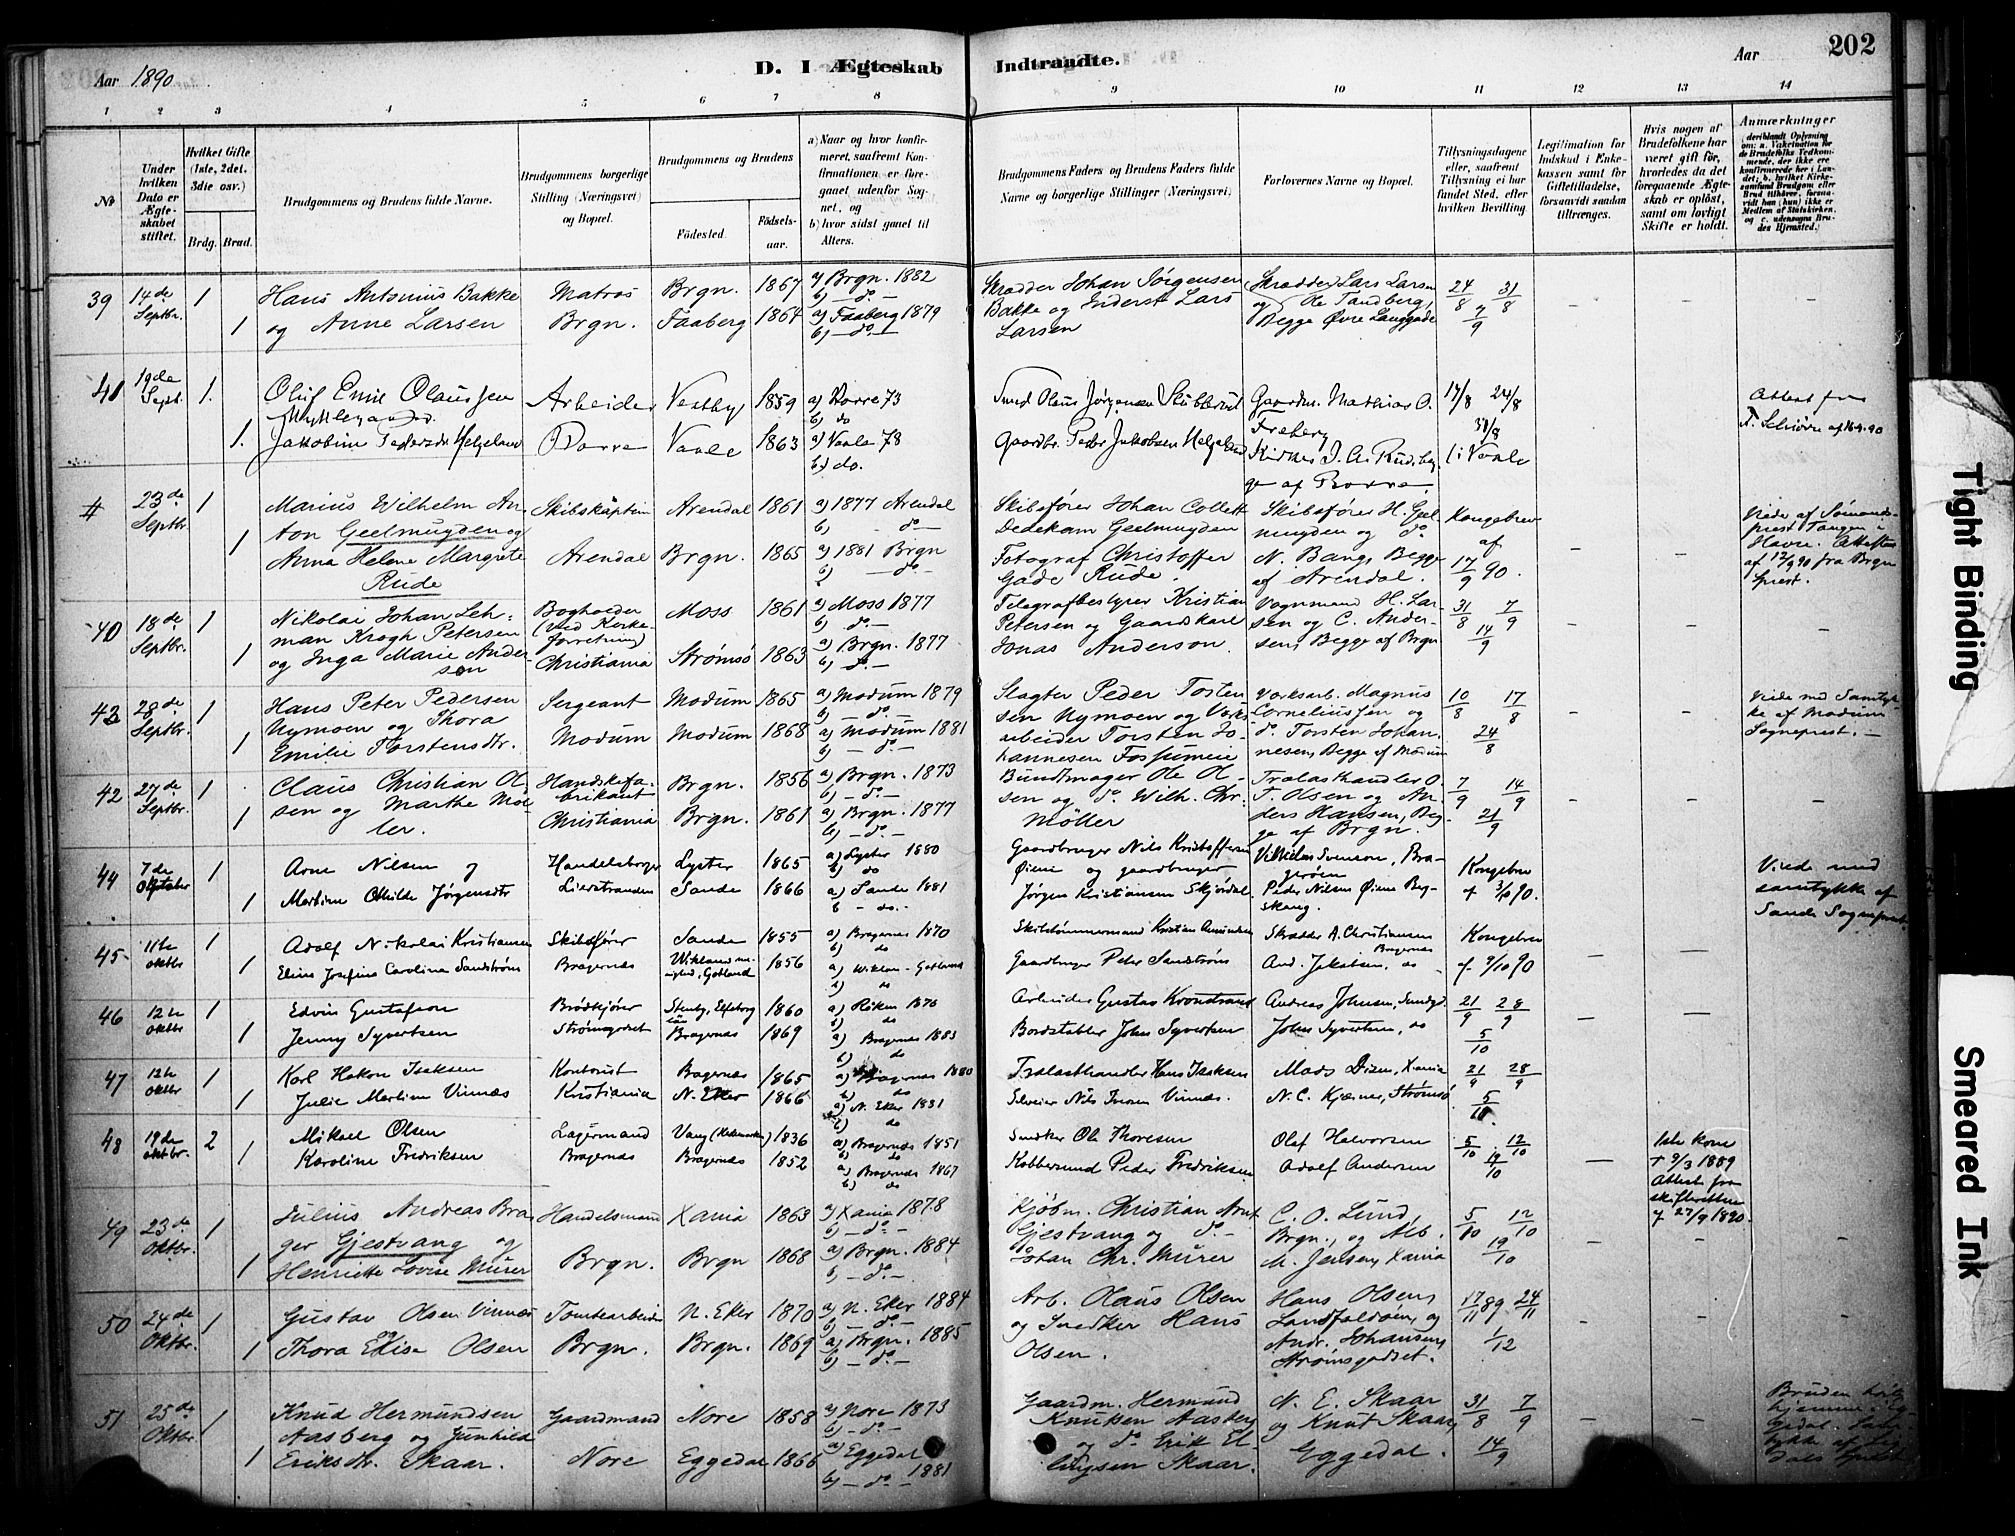 Aar 1890.
D. I Ægteskab Indtraadte.
Aar
202
1 2 3 4 5 6 7 8 9 10 11 12 13 14
No
Under hvilken Dato er Ægteskabet stiftet.
Hvilket Gifte (1ste, 2det, 3die osv.)
Brdg. Brud.
Brudgommens og Brudens fulde Navne.
Brudgommens borgerlige Stilling (Næringsvei) og Bopæl.
Brudgommens og Brudens
Fødested.
Fødselsaar.
a) Naar og hvor konfirmeret, saafremt Konfirmationen er foregaaet udenfor Sognet, og
b) hvor sidst gaaet til Alters.
Brudgommens Faders og Brudens Faders fulde Navne og borgerlige Stillinger (Næringsvei).
Forlovernes Navne og Bopæl.
Tillysningsdagene eller, saafremt Tillysning ei har fundet Sted, efter hvilken Bevilling
Legitimation for Indskud i Enkekassen samt for Giftetilladelse, forsaavidt saadan tiltrænges.
Hvis nogen af Brudefolkene har været gift før, hvorledes da det foregaaende Ægteskab er opløst, samt om lovligt Skifte er holdt.
Anmærkninger
39 14de Septbr. 1 Hans Antonius Bakke Matros Brgn. 1867 a) Brgn. 1882 Skrædder Johan Jørgensen Skrædder Lars Larsen 24/8 31/8
1 og Anne Larsen Brgn. Faaberg 1864 a) Faaberg 1879 Bakke og Inderst Lars og Ole Tandberg, 7/9
b) — do. — Larsen Begge Øvre Langgade
41 19de Septr. 1. Oluf Emil Olaussen Arbeider Vestby 1859 a) Borre 73 Smed Olaus Jørgensen Stubberud Gaardm. Mathias O. 17/8 24/8 Attest fra
b) do Freberg 31/8
1. Jakobine Pedersdr Helgeland Borre Vaale 1863 a) Vaale 78 Gaardbr. Peder Jakobsen Helgeland i Vaale
b) do. af Borre.
# 23de Septbr. 1 Marius Wilhelm An- Skibskaptein Arendal 1861 a) 1877 Arendal Skibsfører Johan Collett Skibsfører H. Geel- Kongebrev Viede af Sømands-
ton Geelmuyden og b) — do — Dedekam Geelmuyden muyden og do af prest Tangen i
1 Anna Helene Margrete Arendal Brgn. 1865 a) 1881 Brgn Fotograf Christoffer N. Bang, Begge 17/9 90. Havre. Attesten
Rude b) — do — Gade Rude. af Arendal. af 12/9 90 fra Brgn prest.
40 18de Septbr. 1 Nikolai Johan Leh- Bogholder Moss 1861 a) Moss 1877 Telegrafbestyrer Kristian Vognmand H. Lar- 31/8 7/9
man Krogh Petersen b) — do — Petersen og Gaardskarl sen og C. Ander- 14/9
1 og Inga Marie Ander- Christiania Strømsø 1863 a) Brgn. 1877 Jonas Anderson. sen, Begge af Brgn
sen b) — do. —
43 28de Septbr. 1 Hans Peter Pedersen Sergeant Modum 1865 a) Modum 1879 Slagter Peder Tosten- Værksarb. Magnus 10/8 17/8 Viede med Samtyk-
Nymoen og Thora b) — do. — sen Nymoen og Værks- Corneliussen og ke af Modum
1 Emilie Torstensdtr. Modum Modum 1868 a) Modum 1881 arbeider Torsten Jo- do. Torsten Johan- 24/8 Sogneprest. —
b) — do. — hannesen Fossumeie nesen, Begge af Modum
42 27de Septbr. 1 Claus Christian Ol- Handskefa- Brgn. 1856 a) Brgn. 1873 Bundtmager Ole Ol- Trælasthandler O. 7/9 14/9
sen og Marthe Møl- brikant b) — do. — sen og do. Wilh. Chr. T. Olsen og An- 21/9
1 ler. Christiania Brgn. 1861 a) Brgn. 1877 Möller ders Hansen, Beg-
b) — do. — ge af Brgn.
44 7de Oktober 1 Arne Nilsen og Handelsborger Lyster 1865 a) Lyster 1880 Gaardbruger Nils Kristoffersen Vilhelm Svenson, Bra- Kongebrev Viede med
b) do Øiene og gaardbruger gerøen samtykke af
1 Martine Othilde Jørgensdtr Lierstranden Sande 1866 a) Sande 1881 Jørgen Kristiansen Skjørdal Peder Nilsen Øiene af 3/10 90. Sande Sogneprest.
b — do. —
45 11te oktbr 1 Adolf Nikolai Kristiansen Skibsfører Sande 1855 a) Bragernes 1870 Skibstømmermand Kristian Amundsen Skrædder A. Christiansen Kongebrev
b) do Bragernes
1 Elina Josefina Carolina Sandström Bragernes 1856 Gaardbruger Peter Sandström And. Jakobsen, do af 9/10 90
46 12te oktbr 1 Edvin Gustafson Brødkjører 1860 a) Röken 1876 Arbeider Gustav Andreas Johnsen, 21/9 28/9
1 Jenny Syvertsen Strømsgodset Bragernes 1869 a) Bragernes 1883 Bordstabler Johs Syvertsen Johs Syvertsen, do 5/10
47 12te oktbr 1 Karl Hakon Isaksen Kontorist Bragernæs 1865 a) Bragernes 1880 Trælasthandler Hans Isaksen Mads Disen, Xania 21/9 28/9
1 Julie Martine Vinnæs Kristiania N. Eker 1866 a) N. Eker 1881 Nils Iversen Vinnæs. N. C. Kjærner, Strømsö 5/10
48 19de oktbr. 2 Mikael Olsen Lagermand Vang (Hedemarken) 1836 a) Bragernæs 1851 Snedker Ole Thoresen Olaf Halvorsen 5/10 12/10 1ste kone
1 Karoline Fredriksen Bragernes Bragernæs 1852 a) Bragernes 1867 Kobbersmed Peder Fredriksen Adolf Andersen 19/10 † 9/3 1889
Attest fra skifteretten af 27/9 1890.
49 23de Oktbr. 1 Julius Andreas Bra- Handelsmand Xania 1863 a) Xania 1878 Kjøbm. Christian Arnt C. O. Lund, 5/10 12/10
ger Gjestvang og b) — do. — Gjestvang og do. — Brgn., og Alb. 19/10
1 Henriette Lovise Murer Brgn. Brgn 1868 a) Brgn. 1884 Johan Chr. Murer M. Jensen, Xania
b) — do. —
50 24de Oktbr. 1 Gustav Olsen Vinnæs Tomtearbeider N. Eker 1870 a) N. Eker 1884 Arb. Olaus Olsen Hans Olsen, 17/11 89 24/11
b) — do. — og Snedker Hans Landfaldøen, og
1 Thora Elise Olsen Brgn. Brgn. 1869 a) Brgn. 1885 Olsen. Andr. Johansen, 1/12
b) — do. — Strømsgodset.
51 25de Oktbr. 1 Knud Hermundsen Gaardmand Nore 1858 a) Nore 1873 Gaardm. Hermund N. E. Skaar 31/8 7/9 Bruden
Aasberg og Gunhild b) — do. — Knutsen Aasberg og Knut Skaar,
1 Eriksdtr. Skaar. Nore Eggedal 1866 a) Eggedal og do Erik El- Eggedal. 14/9
b) — do. — 1881 lingsen Skaar.
Tight Binding
Smeared Ink